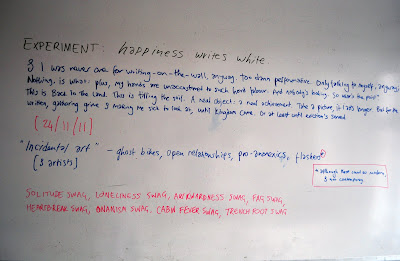 EXPERIMENT: happiness writes white.
& I was never one for writing-on-the-wall, anyway. Too damn performative. Only talking to myself, anyway.
Nothing, is what: plus, my hands are unaccustomed to such hard labour. And nobody's looking. So where's the point?
This is Back to the Land. This is tilling the soil. A real object: a real achievement. Take a picture, it lasts longer. But for the
written, gathering grime & making me sick to look at, until kingdom come. Or at least until erection's saned
[24/11/11]
"Incidental art" - ghost bikes, open relationships, pro-anorexics, flashers*
[& artists]
* although most sound as written
& not containing.
SOLITUDE SWAG, LONELINESS SWAG, AWKWARDNESS SWAG, FAG SWAG,
HEARTBREAK SWAG, ONANISM SWAG. CABIN FEVER SWAG, TRENCH FOOT SWAG